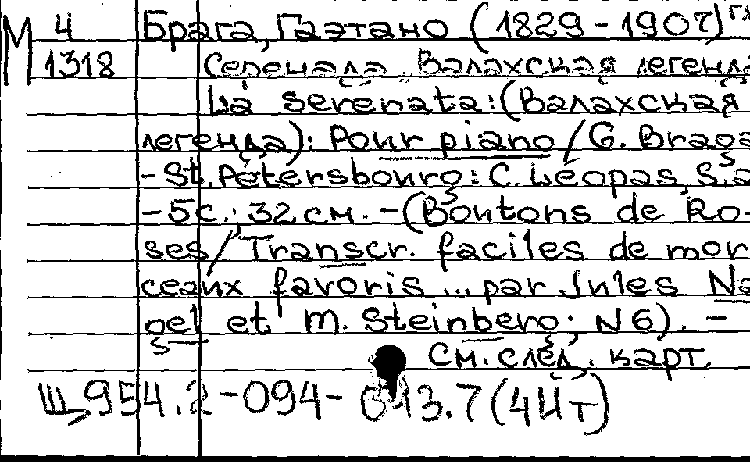 М 4 Брага, Гаэтано (1829-1907)
1318 Серенада. Валахская легенда
La serenata: (Валахская
легенда): Pour piano / G. Braga
- St. Pétersbourg: C. Leopas, S.a
- 5с.; 32 см. - (Boutons de Ro-
ses / Transcr. faciles de mor
ceaux favoris ... par Jules Na
gel et M. Steinberg; N6). -
См. след. карт.
Щ954.2-094-613.7(4Ит)